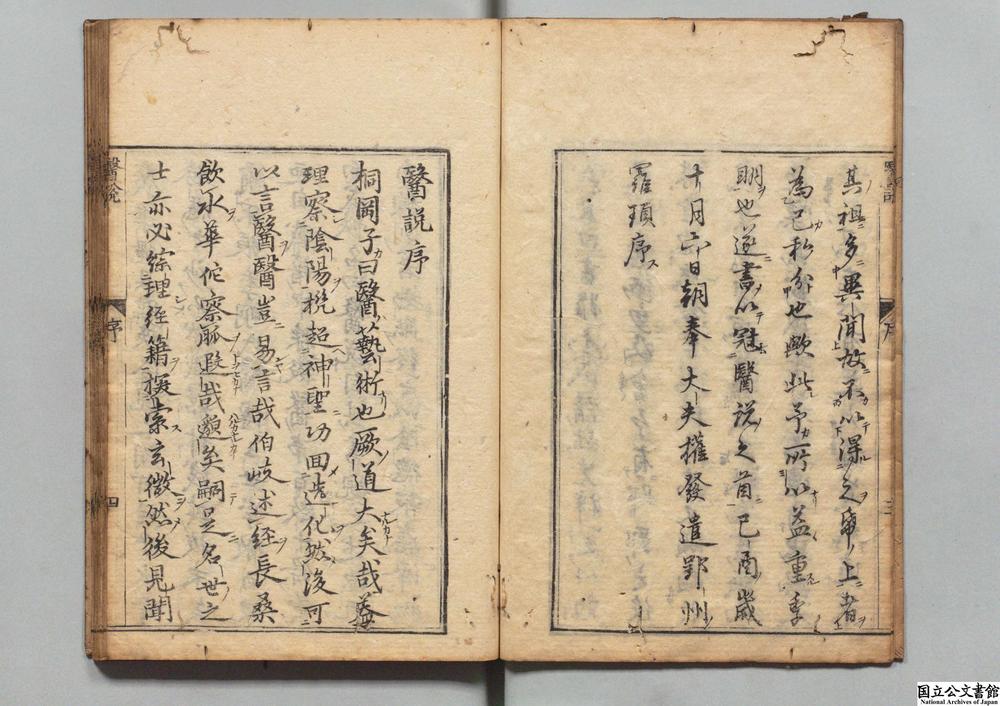 其祖多異聞故不以得之帛上者
為己私分也歟此予所以益重季
明也遂書以冠醫説之首己酉歲
十月六日朝奉大夫權發遣鄂州
羅頊序
醫説序
桐岡子曰醫藝術也厥道大矣哉蓋
理察陰陽挽超神聖功回造化然後可
以言醫醫豈易言哉伯岐述經長桑
飲水華佗察脈遐哉邈矣嗣是名世之
士亦必綜理經籍探索玄微然後見聞
醫説
序
四
国立公文書館
National Archives of Japan